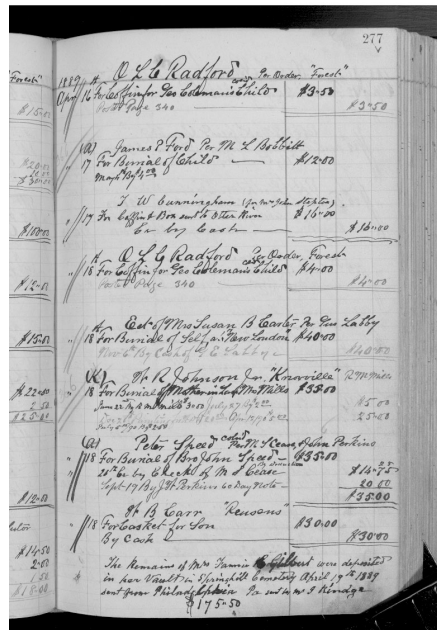 277
1889 A O L C Radford Per Order "Forest"
Apr 16 For Coffin for Geo Coleman's Child $3-50
Posted Page 340 $3-50
(a) James P Ford Per M L Bobbitt
17 For Burial of Child — $12-00
T. W. Cunningham (for Mr John
" 17 For Coffin & Box sent to Otter River $16-00
Cr by Cash — $16-00
A O L C Radford Order, Forest
" 18 For Coffin for Geo Coleman's Child $4-00
Posted Page 340 $4-00
Est of Mrs Susan B Carter Per Gus Labby
" 18 For Burial of Self, at New London $40-00
$40-00
W R Johnson Jr. "Knoxville"
" 18 For Burial of Mother in law Mrs Mills $55-00
$5-00
25-00
(a) Peter Speed Per M S Cease & John Perkins
" 18 For Burial of Bro John Speed — $35-00
25th Cr by Check of M S Cease
Sept-17 By J. H. Perkins 60 Day Note — 20 00
$35 00
W B Carr "Reusens"
" 18 For Casket for Son $30-00
By Cash — $30-00
The Remains of Mrs Fannie E Gilbert were deposited
in her Vault in Springhill Cemetery April 19th 1889
sent from Philadelphia Pa
$175-50
$15-00
$100-00
$12-00
$15-00
$22-00
2 50
$12-00
$14-50
2-00
1 50
$18-00